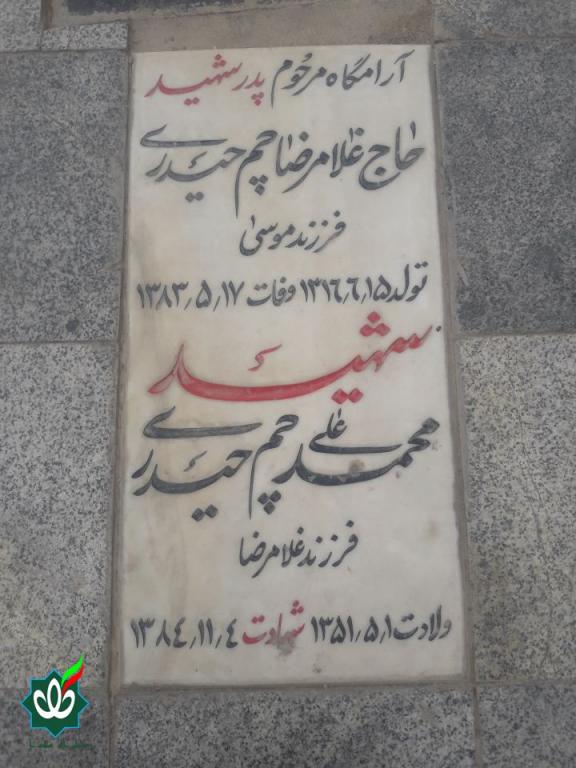 آرامگاه مرحوم پدر شهید
حاج غلامرضا چم حیدری
فرزند موسیٰ
تولد ۱۳۱۶٫۶٫۱۵ وفات ۱۳۸۳٫۵٫۱۷
شهید
محمد علی چم حیدری
فرزند غلامرضا
ولادت ۱۳۵۱٫۵٫۱ شهادت ۱۳۸۴٫۱۱٫۴